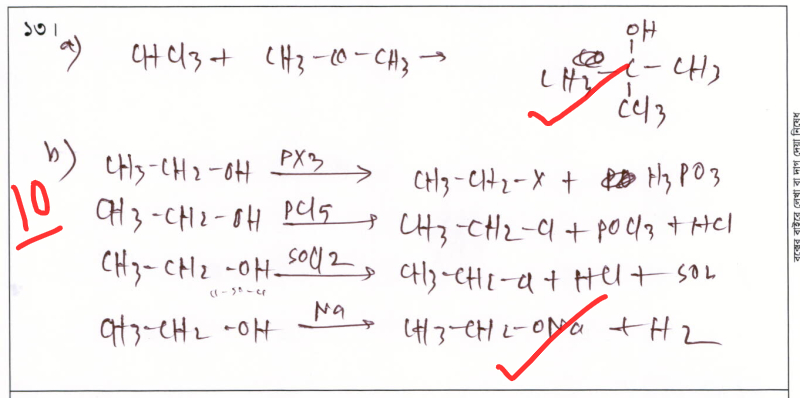 ১৩।
a) CHCl3 + CH3-CO-CH3 → CH3-C-CH3
OH
CCl3
b) CH3-CH2-OH PX3 → CH3-CH2-X + H3PO3
10
CH3-CH2-OH PCl5 → CH3-CH2-Cl + POCl3 + HCl
CH3-CH2-OH SOCl2 → CH3-CH2-Cl + HCl + SO2
Cl-SO-Cl
CH3-CH2-OH Na → CH3-CH2-ONa + H2
বক্সের বাইরে লেখা বা দাগ দেয়া নিষেধ